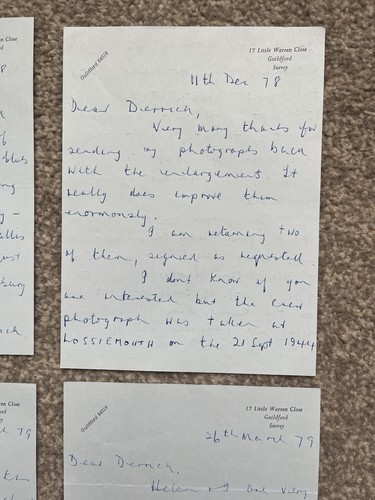 Guildford 66519
17 Little Warren Close
Guildford
Surrey
11th Dec 78
Dear Derrick,
Very many thanks for
sending my photographs back
with the enlargement. It
really does improve them
enormously.
I am returning two
of them, signed as requested.
I don't know if you
are interested but the crew
photograph was taken at
LOSSIEMOUTH on the 21 Sept 1944
17 Little Warren Close
Guildford
Surrey
Guildford 66519
26th March 79
Dear Derrick,
Helen & I are very